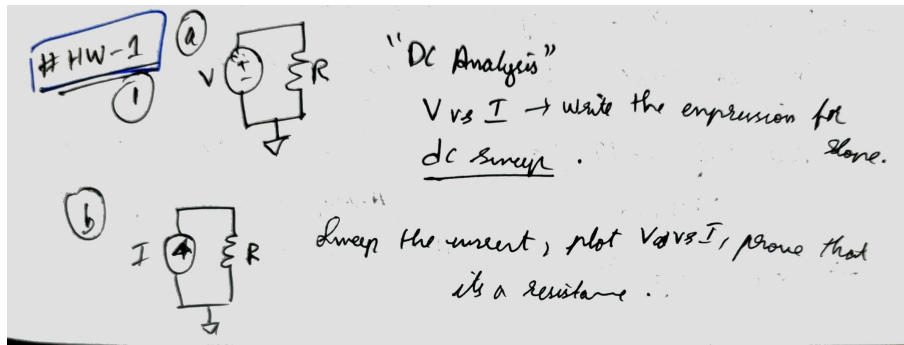 # HW-1
1
a
V
R
"DC Analysis"
V vs I → write the expression for
slope.
dc sweep .
b
I
R
Sweep the current, plot V vs I, prove that
its a resistance .